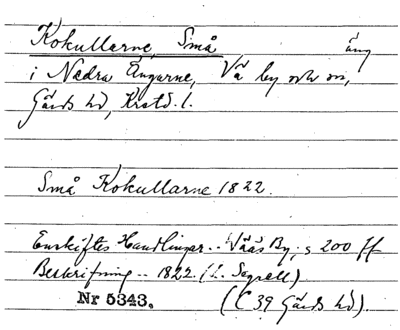 Kokullarne, Små äng
i Nedra Ängarne, Vä by och sn,
Gärds hd, Krstd. l.
Små Kokullarne 1822.
Enskiftes Handlingar .. Wää's By, s 200 ff
Beskrifning .. 1822. (L. Segrell).
Nr 5343. (C 39 Gärds hd).